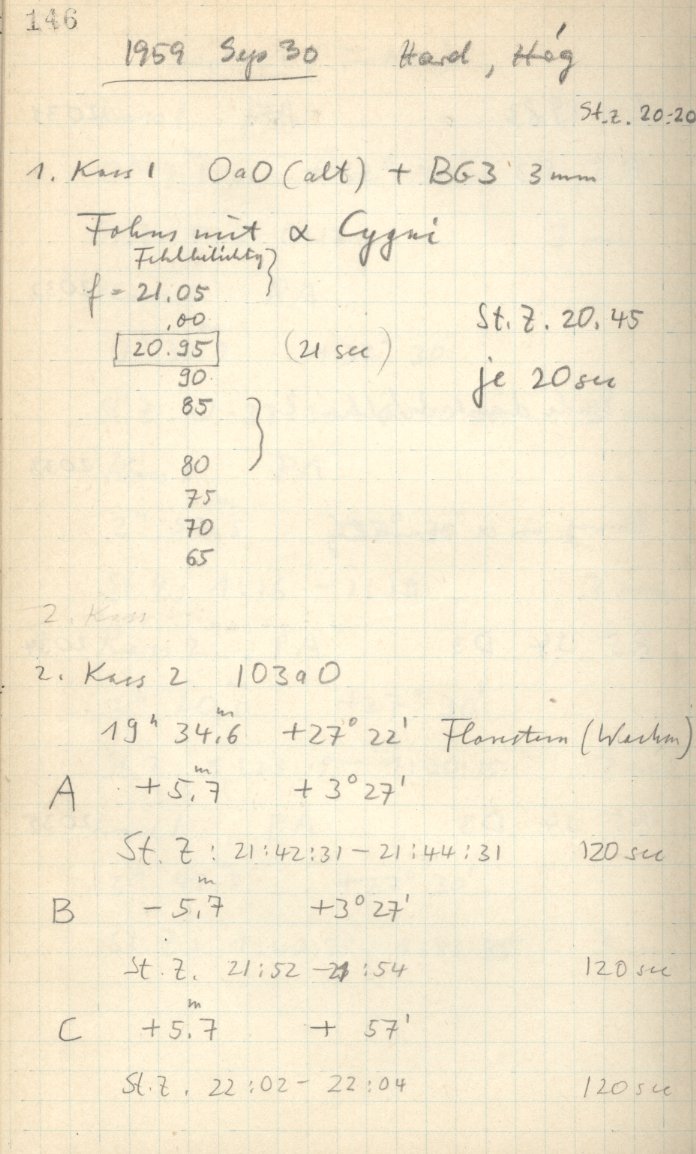 146
1959 Sep 30 Hard, Høg
St.Z. 20:20
1. Kass 1 OaO (alt) + BG3 3mm
Fokus mit α Cygni
Fehlbelichtg }
f = 21.05
.00
20.95 (21 sec)
St. Z. 20.45
90
je 20 sec
85 }
80
75
70
65
2. Kass
2. Kass 2 103aO
19ʰ 34ᵐ.6 +27° 22' Flarestern (Wachm)
A +5ᵐ.7 +3° 27'
St. Z : 21:42:31 - 21:44:31 120 sec
B -5ᵐ.7 +3° 27'
St. Z. 21:52 - 21:54 120 sec
C +5ᵐ.7 + 57'
St.Z. 22:02 - 22:04 120 sec